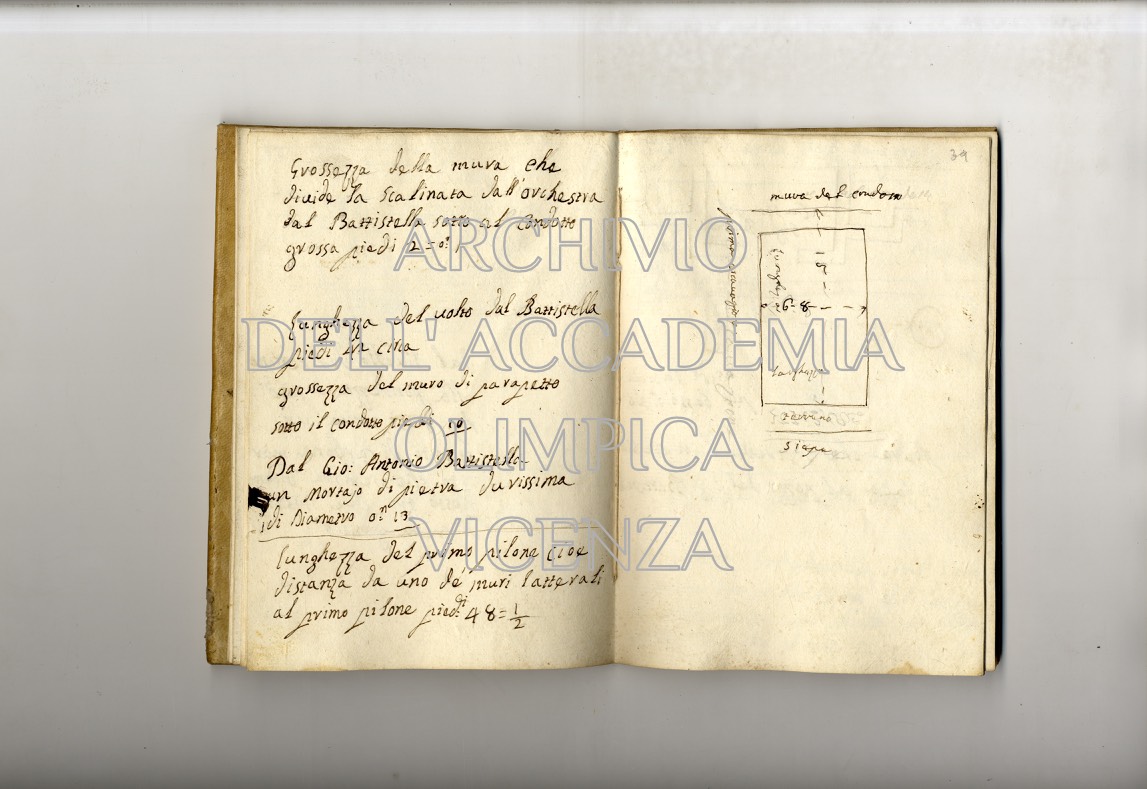 Grossezza della mura che
divide la Scalinata dall'orchestra
dal Battistella sotto al Condotto
grossa piedi 2 = on: 1
Lunghezza del volto dal Battistella
piedi in circa
grossezza del muro di parapetto
sotto il condotto piedi 10
Dal Gio: Antonio Battistella
un Mortajo di pietra durissima
di Diametro on 13
Lunghezza del primo pilone cioè
distanza da uno de' muri latterali
al primo pilone piedi 48 = 1/2
39
mura del condotto
primo scavo
Lunghezza
15
6-8
Larghezza
terreno
siepe
ARCHIVIO
DELL'ACCADEMIA
OLIMPICA
VICENZA